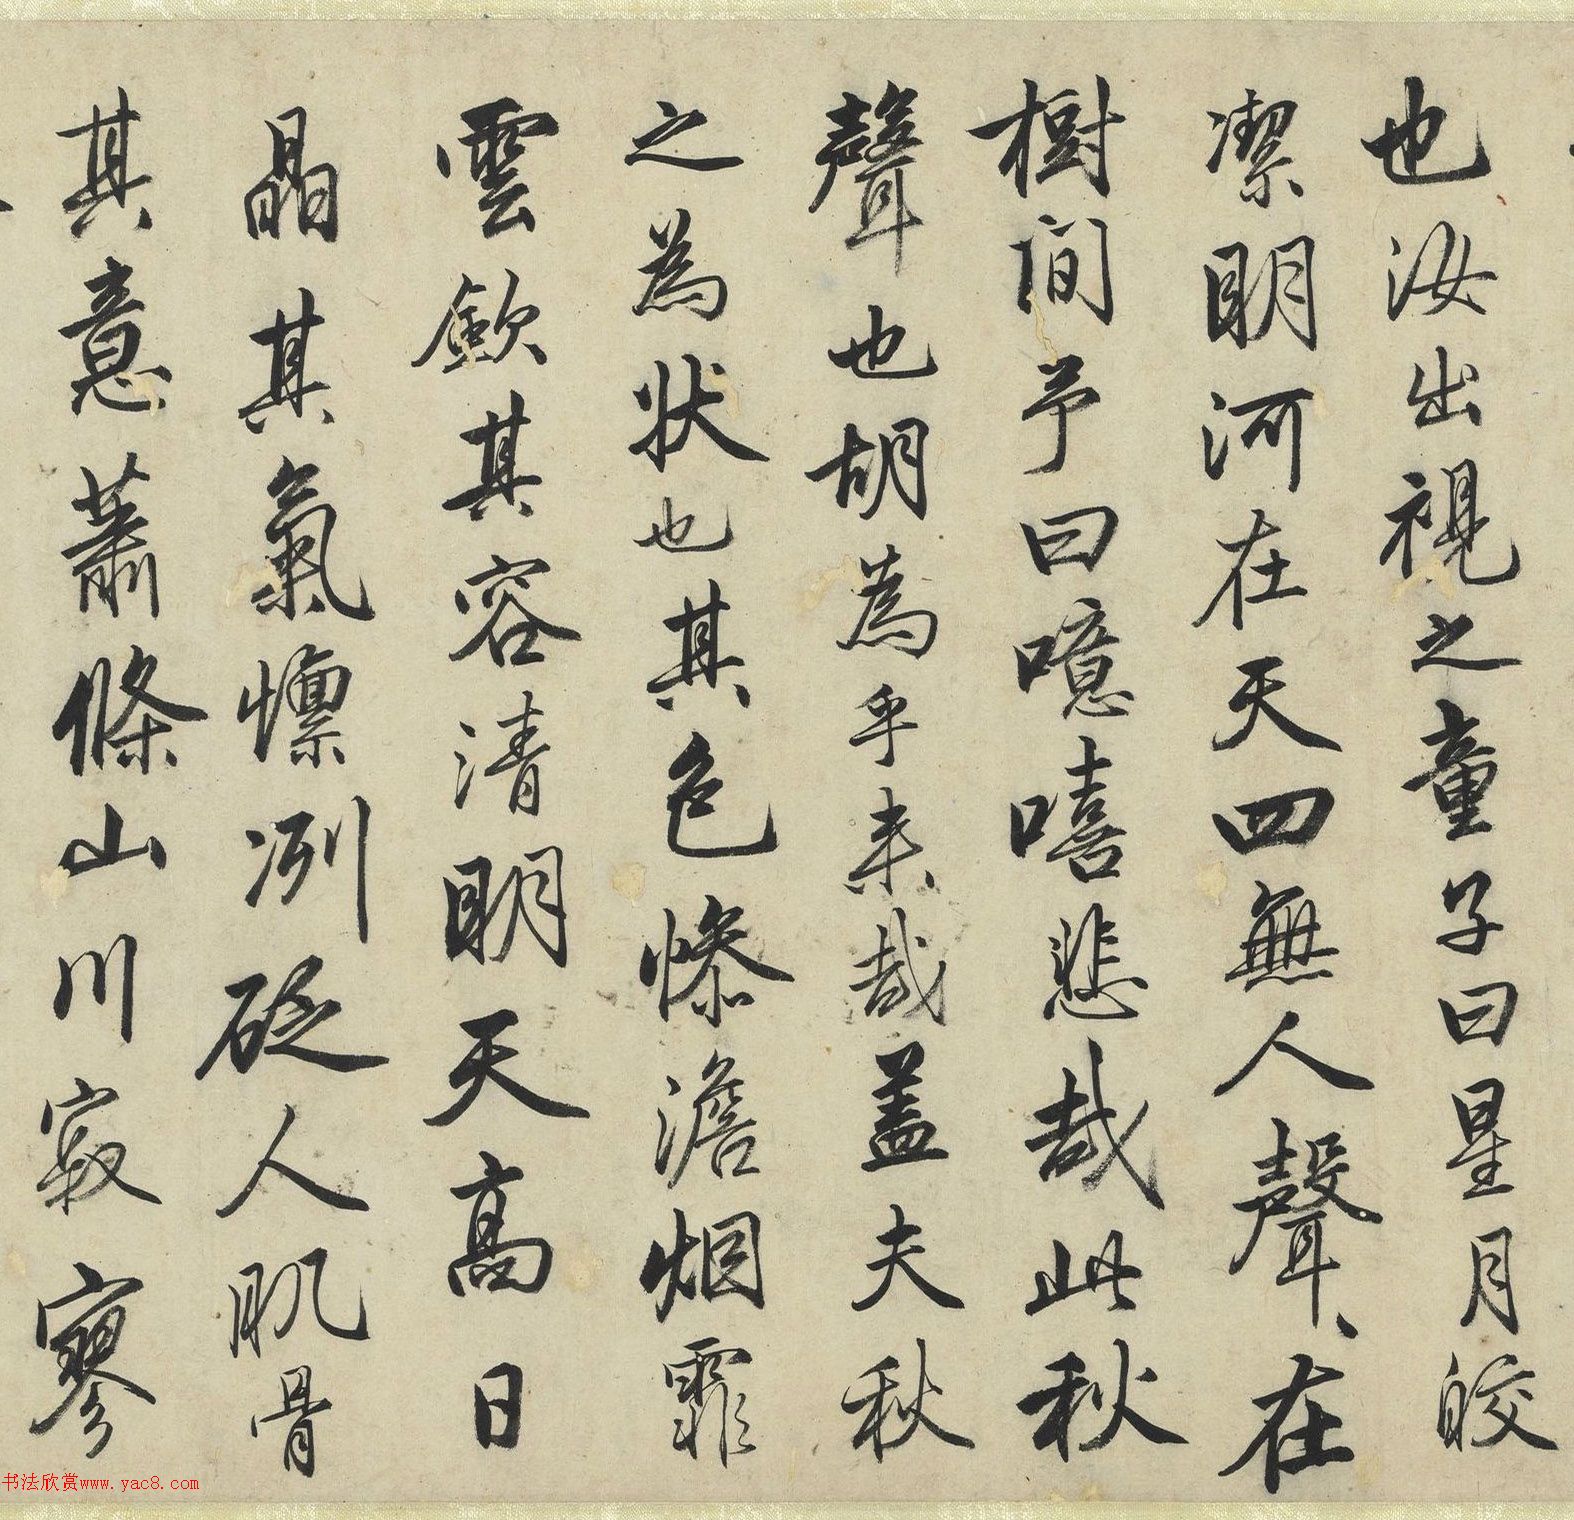 也汝出視之童子曰星月皎
潔明河在天四無人聲聲在
樹間予曰噫嘻悲哉此秋
聲也胡為乎来哉盖夫秋
之為狀也其色慘澹烟霏
雲斂其容清明天高日
晶其氣慄冽砭人肌骨
其意蕭條山川寂寥
书法欣赏www.yac8.com